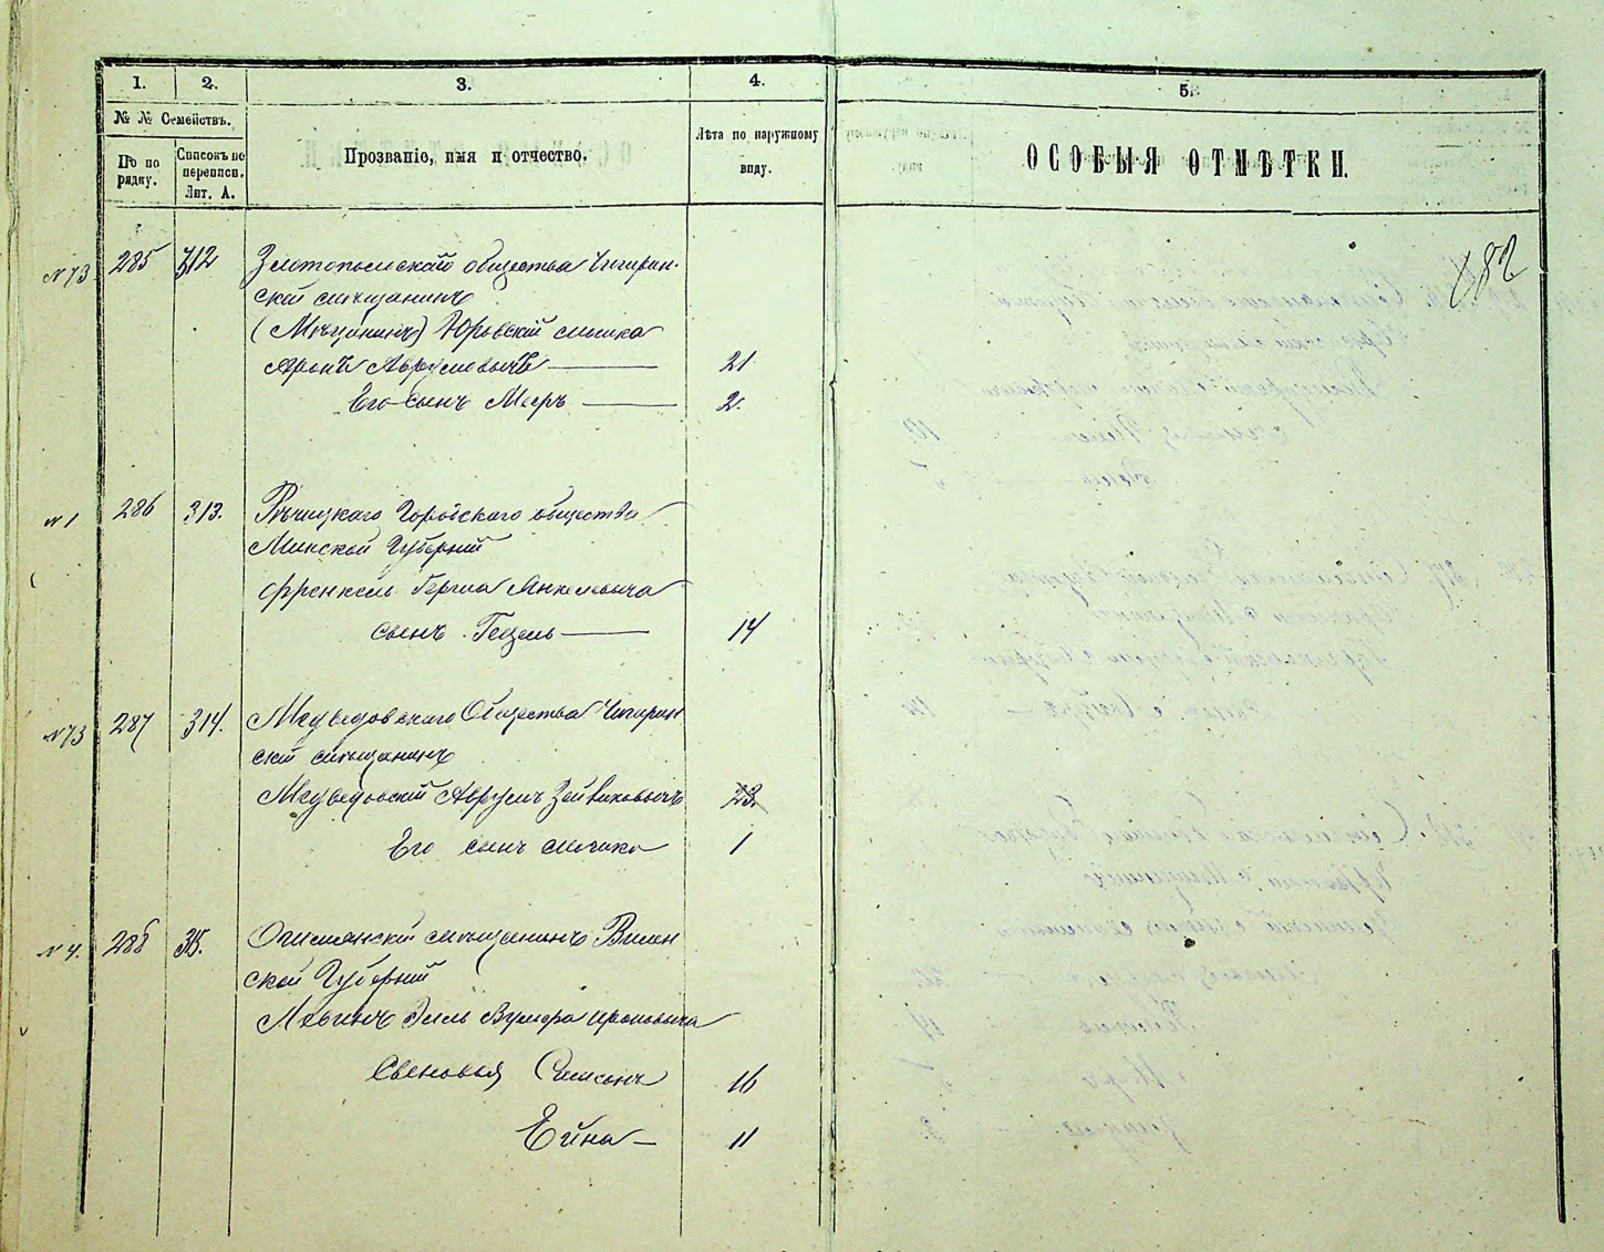 1. 2. 3. 4. 5.
№ № Семействъ.
По по рядку.
Списокъ по переписи. Лит. А.
Прозваніе, имя и отчество.
Лѣта по наружному виду.
ОСОБЫЯ ОТМѢТКИ.
182
N 73 285 312 Златопольскаго общества Чигирин-
скій мѣщанинъ
(Мѣщанинъ) Юровскій Мошка
Аронъ Аврумовичъ 21
Его сынъ Мееръ 2.
N 1 286 313. Рѣчицкаго Городскаго общества
Минской Губерніи
Френкель Герша Янкелевича
сынъ Гецель 14
N 73 287 314. Медведовскаго Общества Чигирин
скій мѣщанинъ
Медведовскій Аврумъ 23.
Его сынъ Мошко 1
N 4. 288 315. Ошмянскій мѣщанинъ Вилен
ской Губерніи
Левинъ
сыновья Симсонъ 16
Ейна 11